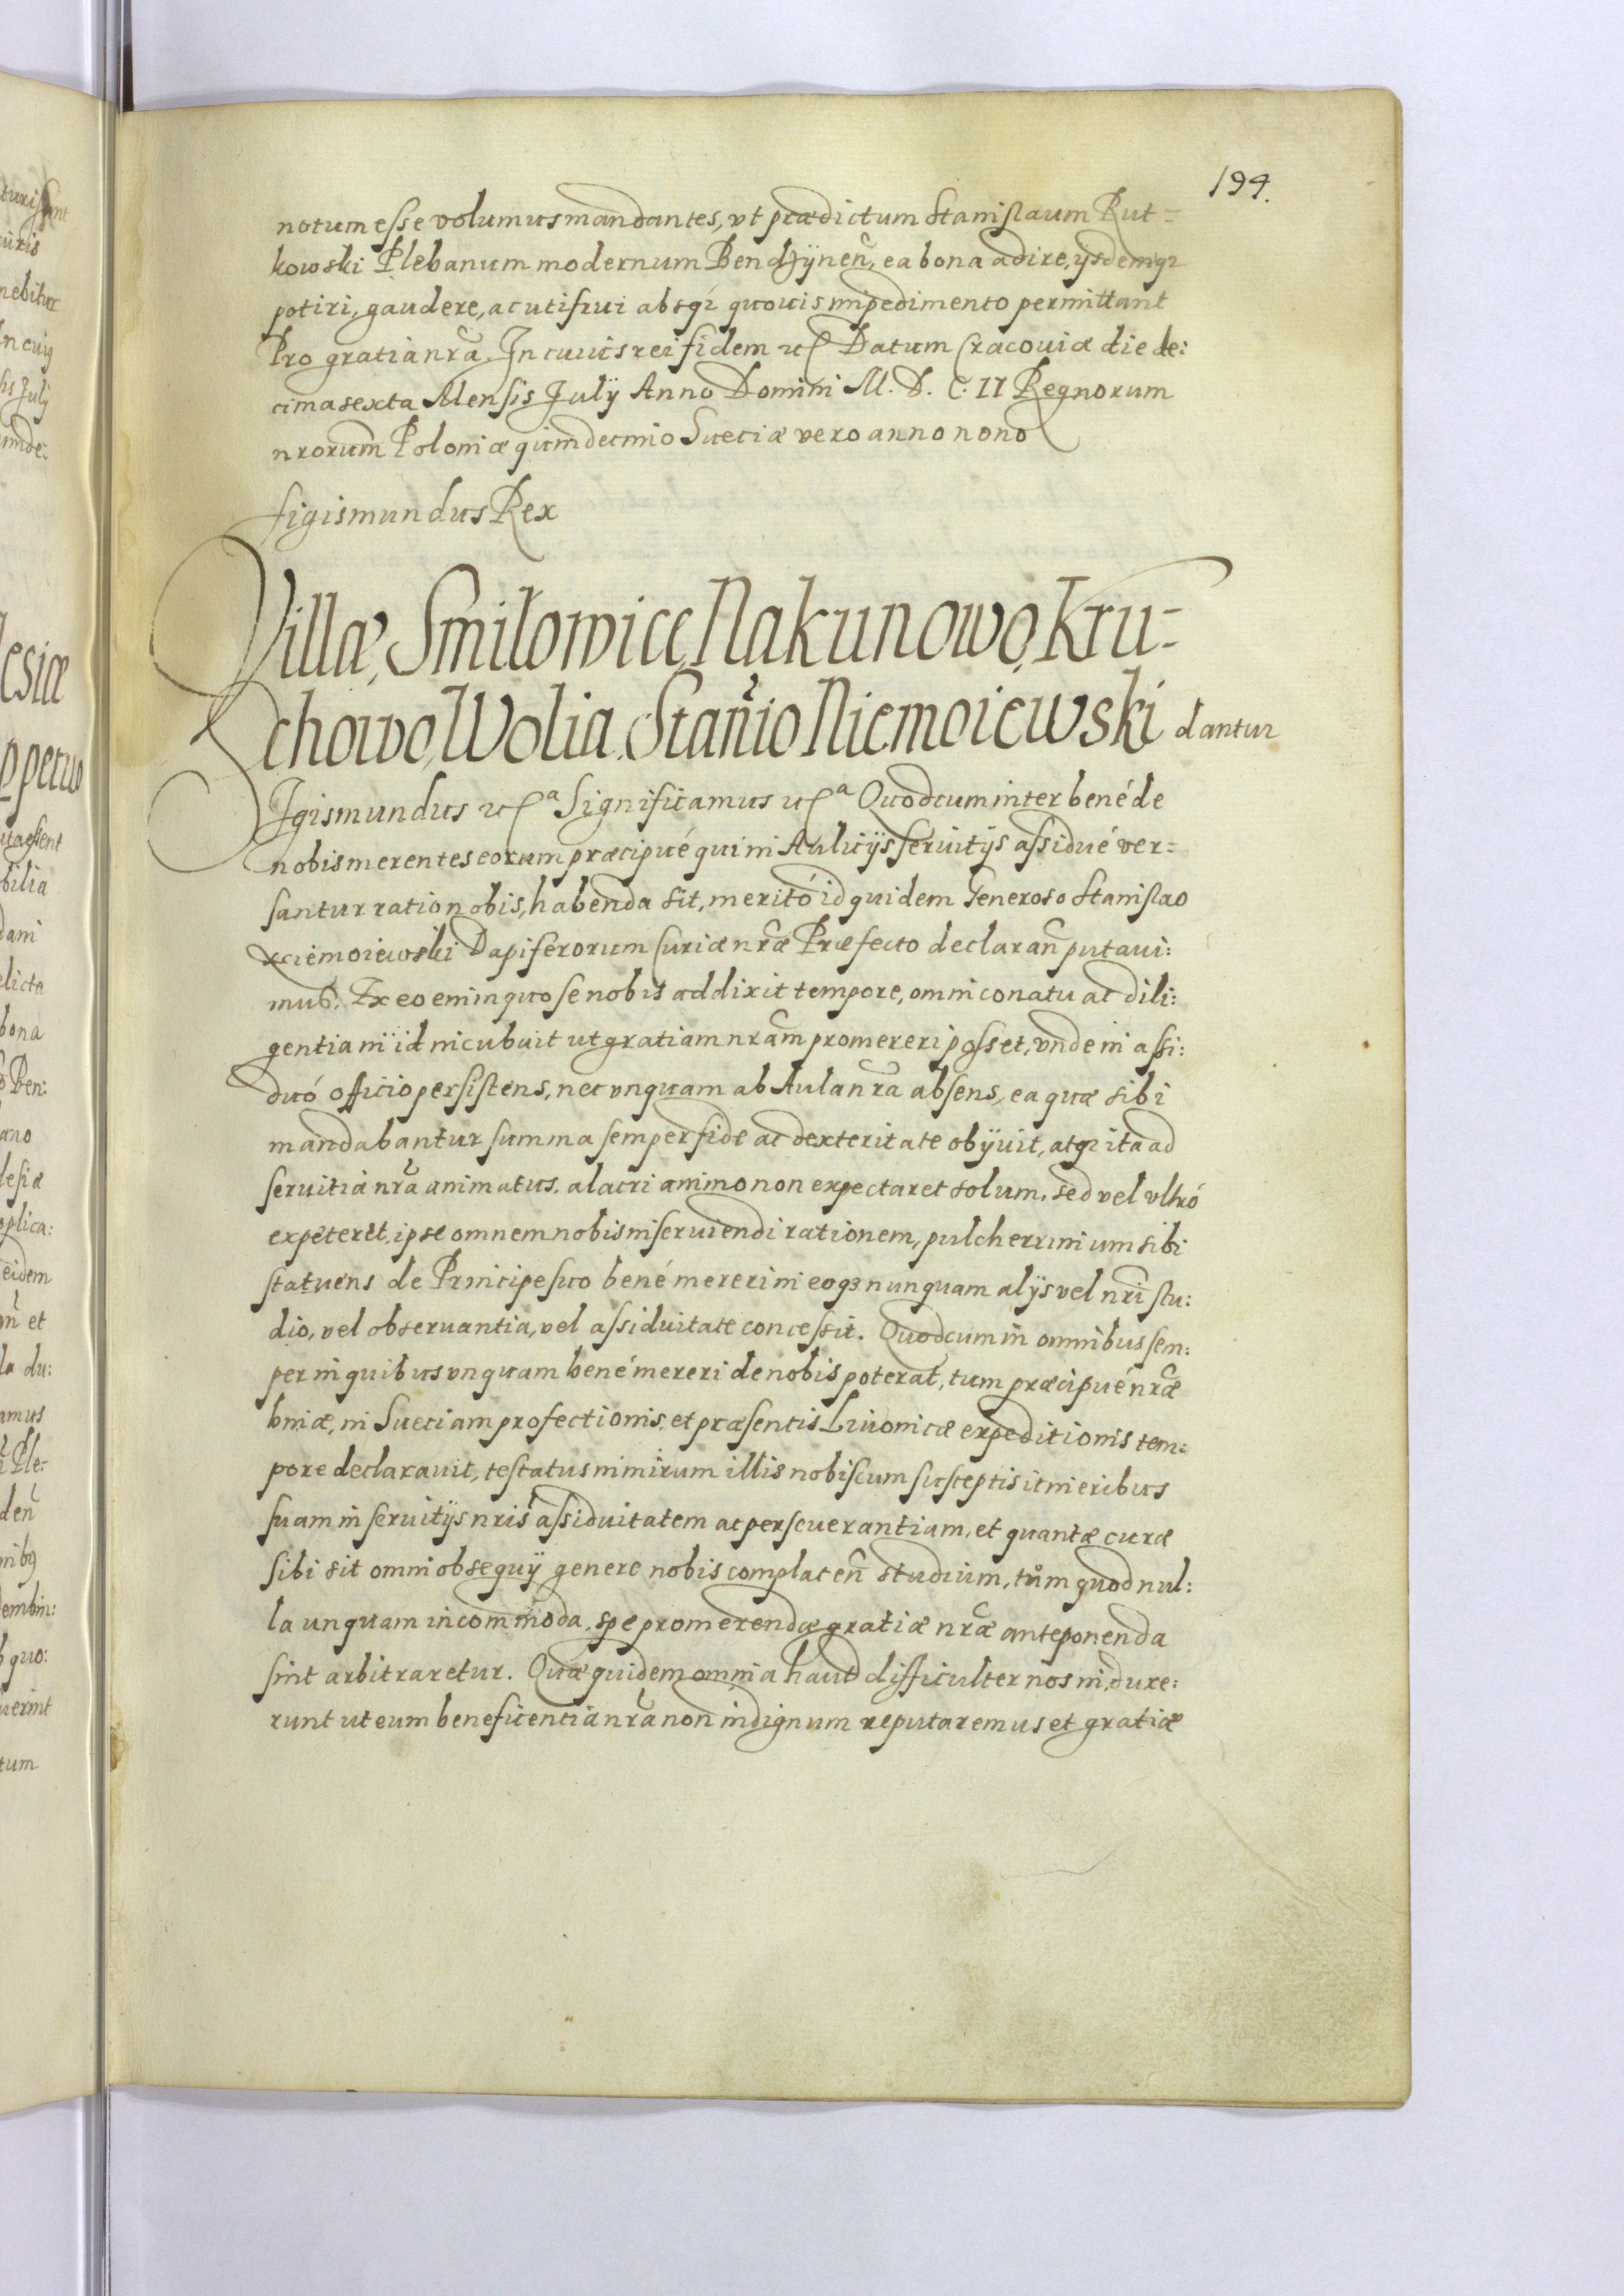 194.
notum esse volumus mandantes, vt prædictum Stanislaum Rut=
kowski Plebanum modernum Bendzÿnen̄, ea bona adire, ÿsdemq3
potiri, gaudere, ac utifrui absq3 quouis impedimento permittant
Pro gratia nr̃a. In cuius rei fidem etc Datum Cracouiæ die de:
cima sexta Mensis Julÿ Anno Domini M. D. C. II Regnorum
nrorum̃ Poloniæ quindecimo Sueciæ vero anno nono
Sigismundus Rex
Villæ, Smiłowice, Nakunowo, Kru=
chowo, Wolia, Stan̄io Niemoiewski dantur
Sigismundus etcª Significamus etcª Quod cum inter bené de
nobis merentes eorum præcipué qui in Aulicÿs seruitÿs assidué ver=
santur ratio nobis, habenda sit, meritó id quidem Generoso Stanislao
Niemoiewski Dapiferorum Curiæ nr̃æ Præfecto declaran̄ putaui:
mus. Ex eo enim quo se nobis addixit tempore, omni conatu ac dili:
gentia in id incubuit ut gratiam nr̃am promereri posset, vnde in assi:
duó officio persistens, nec vnquam ab Aula nr̃a absens, ea quæ sibi
mandabantur summa semper fide ac dexteritate obÿuit, atq3 ita ad
seruitia nr̃a animatus. alacri animo non expectaret solum, sed vel vltró
expeteret, ipse omnem nobis inseruiendi rationem, pulcherrimum sibi
statuens de Principe suo bené mereri in eoq3 nunquam alÿs vel nr̃i stu:
dio, vel obseruantia, vel assiduitate concessit. Quod cum in omnibus sem:
per in quibus vnquam bené mereri de nobis poterat, tum præcipué nr̃æ
binæ, in Sueciam profectionis, et præsentis Liuonicæ expeditionis tem:
pore declarauit, testatus nimirum illis nobiscum susceptis itineribus
suam in seruitÿs nr̃is assiduitatem ac perseuerantiam, et quantæ curæ
sibi sit omni obsequÿ genere nobis complacen̄ studium, tům quod nul:
la unquam incommoda, spe promerendæ gratiæ nr̃æ anteponenda
sint arbitraretur. Quæ quidem omnia haud difficulter nos in,duxe:
runt ut eum beneficentia nr̃a non indignum reputaremus et gratiæ